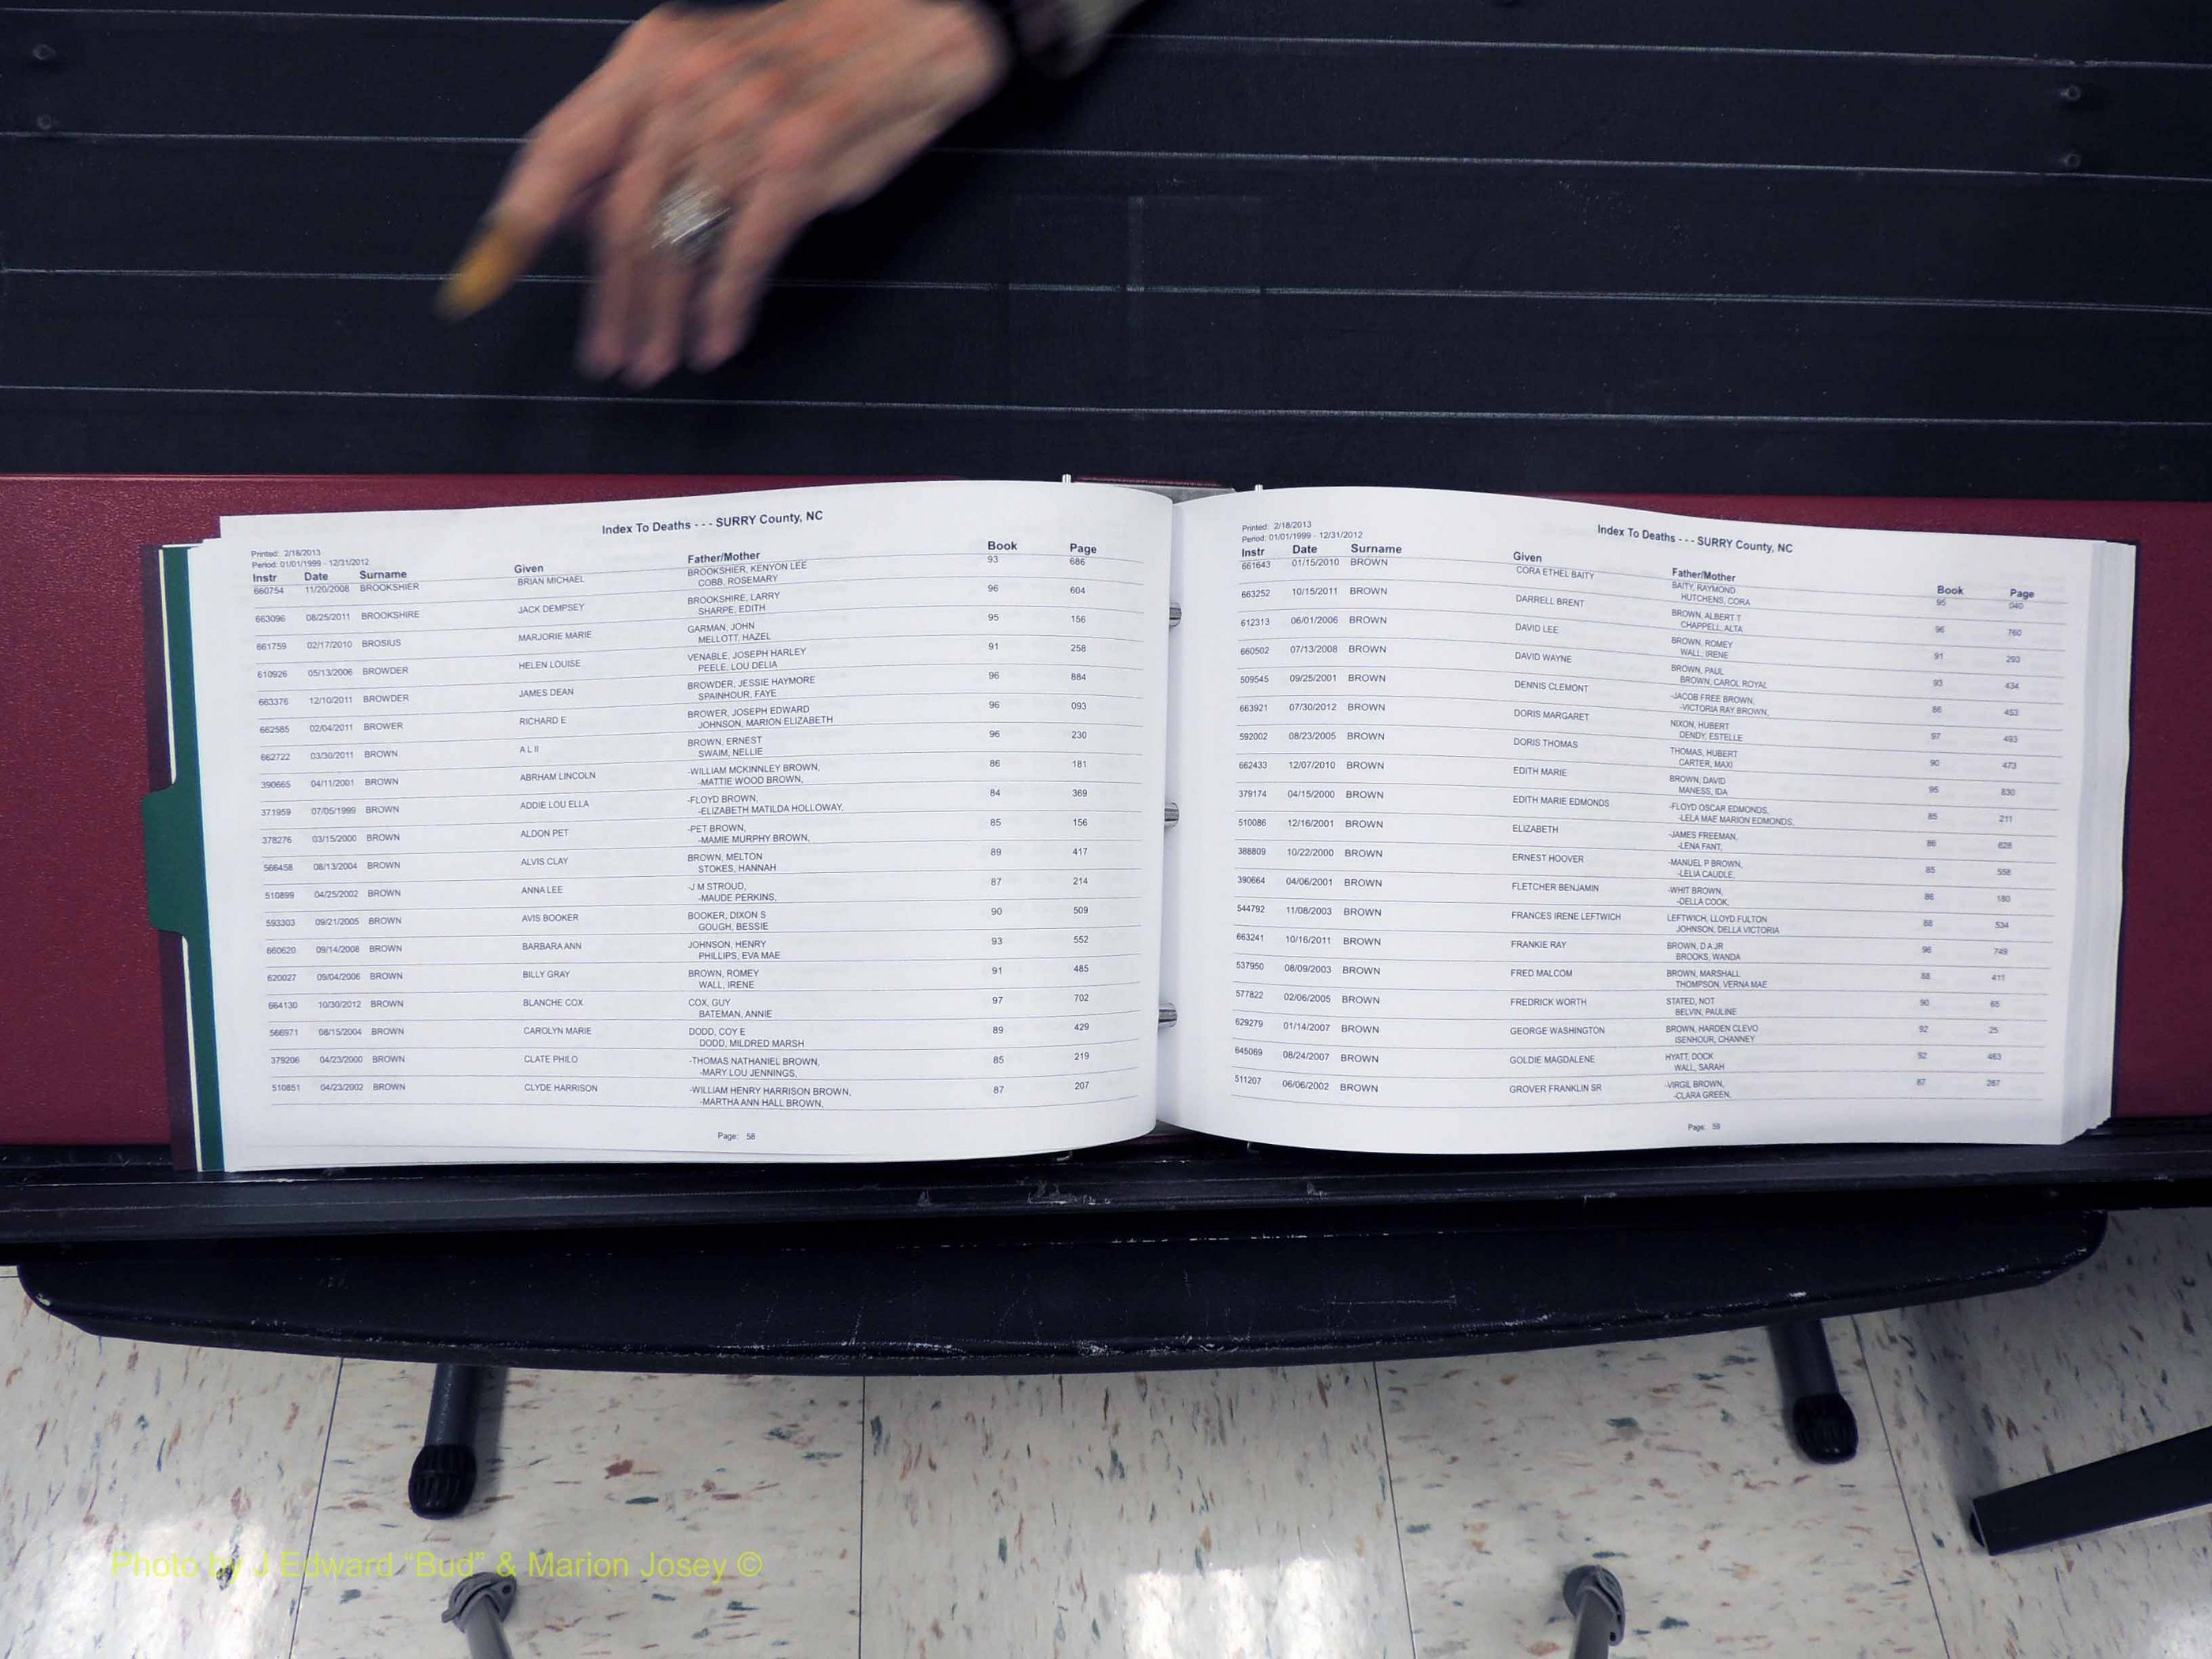 Index To Deaths - - - SURRY County, NC
Printed: 2/18/2013
Period: 01/01/1999 - 12/31/2012
Instr Date Surname Given Father/Mother Book Page
660754 11/20/2008 BROOKSHIER BRIAN MICHAEL BROOKSHIER, KENYON LEE 93 686
COBB, ROSEMARY
663096 08/25/2011 BROOKSHIRE JACK DEMPSEY BROOKSHIRE, LARRY 96 604
SHARPE, EDITH
661759 02/17/2010 BROSIUS MARJORIE MARIE GARMAN, JOHN 95 156
MELLOTT, HAZEL
610926 05/13/2006 BROWDER HELEN LOUISE VENABLE, JOSEPH HARLEY 91 258
PEELE, LOU DELIA
663376 12/10/2011 BROWDER JAMES DEAN BROWDER, JESSIE HAYMORE 96 884
SPAINHOUR, FAYE
662585 02/04/2011 BROWER RICHARD E BROWER, JOSEPH EDWARD 96 093
JOHNSON, MARION ELIZABETH
662722 03/30/2011 BROWN A L II BROWN, ERNEST 96 230
SWAIM, NELLIE
390665 04/11/2001 BROWN ABRHAM LINCOLN -WILLIAM MCKINNLEY BROWN, 86 181
-MATTIE WOOD BROWN,
371959 07/05/1999 BROWN ADDIE LOU ELLA -FLOYD BROWN, 84 369
-ELIZABETH MATILDA HOLLOWAY,
378276 03/15/2000 BROWN ALDON PET -PET BROWN, 85 156
-MAMIE MURPHY BROWN,
566458 08/13/2004 BROWN ALVIS CLAY BROWN, MELTON 89 417
STOKES, HANNAH
510899 04/25/2002 BROWN ANNA LEE -J M STROUD, 87 214
-MAUDE PERKINS,
593303 09/21/2005 BROWN AVIS BOOKER BOOKER, DIXON S 90 509
GOUGH, BESSIE
660620 09/14/2008 BROWN BARBARA ANN JOHNSON, HENRY 93 552
PHILLIPS, EVA MAE
620027 09/04/2006 BROWN BILLY GRAY BROWN, ROMEY 91 485
WALL, IRENE
664130 10/30/2012 BROWN BLANCHE COX COX, GUY 97 702
BATEMAN, ANNIE
566971 08/15/2004 BROWN CAROLYN MARIE DODD, COY E 89 429
DODD, MILDRED MARSH
379206 04/23/2000 BROWN CLATE PHILO -THOMAS NATHANIEL BROWN, 85 219
-MARY LOU JENNINGS,
510851 04/23/2002 BROWN CLYDE HARRISON -WILLIAM HENRY HARRISON BROWN, 87 207
-MARTHA ANN HALL BROWN,
Page: 58
Index To Deaths - - - SURRY County, NC
Printed: 2/18/2013
Period: 01/01/1999 - 12/31/2012
Instr Date Surname Given Father/Mother Book Page
661643 01/15/2010 BROWN CORA ETHEL BAITY BAITY, RAYMOND 95 040
HUTCHENS, CORA
663252 10/15/2011 BROWN DARRELL BRENT BROWN, ALBERT T 96 760
CHAPPELL, ALTA
612313 06/01/2006 BROWN DAVID LEE BROWN, ROMEY 91 293
WALL, IRENE
660502 07/13/2008 BROWN DAVID WAYNE BROWN, PAUL 93 434
BROWN, CAROL ROYAL
509545 09/25/2001 BROWN DENNIS CLEMONT -JACOB FREE BROWN, 86 453
-VICTORIA RAY BROWN,
663921 07/30/2012 BROWN DORIS MARGARET NIXON, HUBERT 97 493
DENDY, ESTELLE
592002 08/23/2005 BROWN DORIS THOMAS THOMAS, HUBERT 90 473
CARTER, MAXI
662433 12/07/2010 BROWN EDITH MARIE BROWN, DAVID 95 830
MANESS, IDA
379174 04/15/2000 BROWN EDITH MARIE EDMONDS -FLOYD OSCAR EDMONDS, 85 211
-LELA MAE MARION EDMONDS,
510086 12/16/2001 BROWN ELIZABETH -JAMES FREEMAN, 86 628
-LENA FANT,
388809 10/22/2000 BROWN ERNEST HOOVER -MANUEL P BROWN, 85 558
-LELIA CAUDLE,
390664 04/06/2001 BROWN FLETCHER BENJAMIN -WHIT BROWN, 86 180
-DELLA COOK,
544792 11/08/2003 BROWN FRANCES IRENE LEFTWICH LEFTWICH, LLOYD FULTON 88 534
JOHNSON, DELLA VICTORIA
663241 10/16/2011 BROWN FRANKIE RAY BROWN, D A JR 96 749
BROOKS, WANDA
537950 08/09/2003 BROWN FRED MALCOM BROWN, MARSHALL 88 411
THOMPSON, VERNA MAE
577822 02/06/2005 BROWN FREDRICK WORTH STATED, NOT 90 65
BELVIN, PAULINE
629279 01/14/2007 BROWN GEORGE WASHINGTON BROWN, HARDEN CLEVO 92 25
ISENHOUR, CHANNEY
645069 08/24/2007 BROWN GOLDIE MAGDALENE HYATT, DOCK 92 463
WALL, SARAH
511207 06/06/2002 BROWN GROVER FRANKLIN SR -VIRGIL BROWN, 87 267
-CLARA GREEN,
Page: 59
Photo by J Edward “Bud” & Marion Josey ©